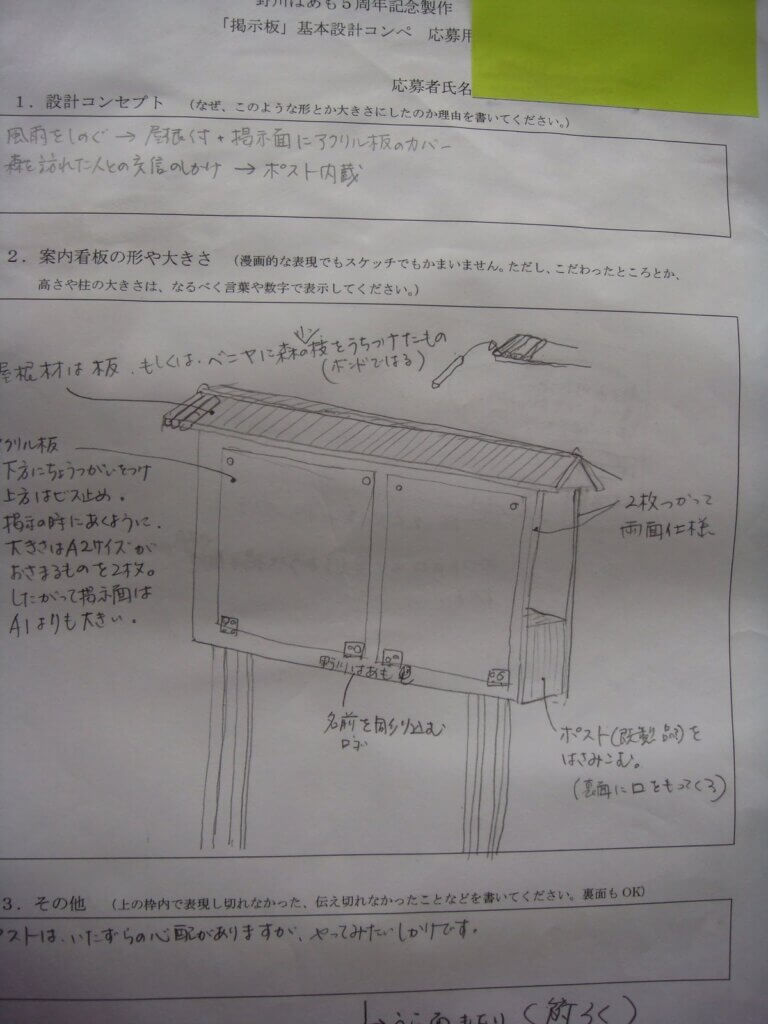 野川はあも５周年記念製作
「掲示板」基本設計コンペ　応募用
応募者氏名
１．設計コンセプト　（なぜ、このような形とか大きさにしたのか理由を書いてください。）
風雨をしのぐ → 屋根付 + 掲示面にアクリル板のカバー
森を訪れた人との交信のしかけ → ポスト内蔵
２．案内看板の形や大きさ　（漫画的な表現でもスケッチでもかまいません。ただし、こだわったところとか、
高さや柱の大きさは、なるべく言葉や数字で表示してください。）
屋根材は板、もしくは、ベニヤに森の枝をうちつけたもの
（ボンドではる）
クリル板
下方にちょうつがいをつけ
上方はビス止め。
掲示の時にあくように。
大きさはA2サイズが
おさまるものを2枚。
したがって掲示面は
A1よりも大きい。
2枚つかって
両面仕様
野川はあも
名前を彫り込む
ロゴ
ポスト(既製品)を
はさみこむ。
(裏面に口をもってくる)
３．その他　（上の枠内で表現し切れなかった、伝え切れなかったことなどを書いてください。裏面も OK）
ストは、いたずらの心配がありますが、やってみたいしかけです。